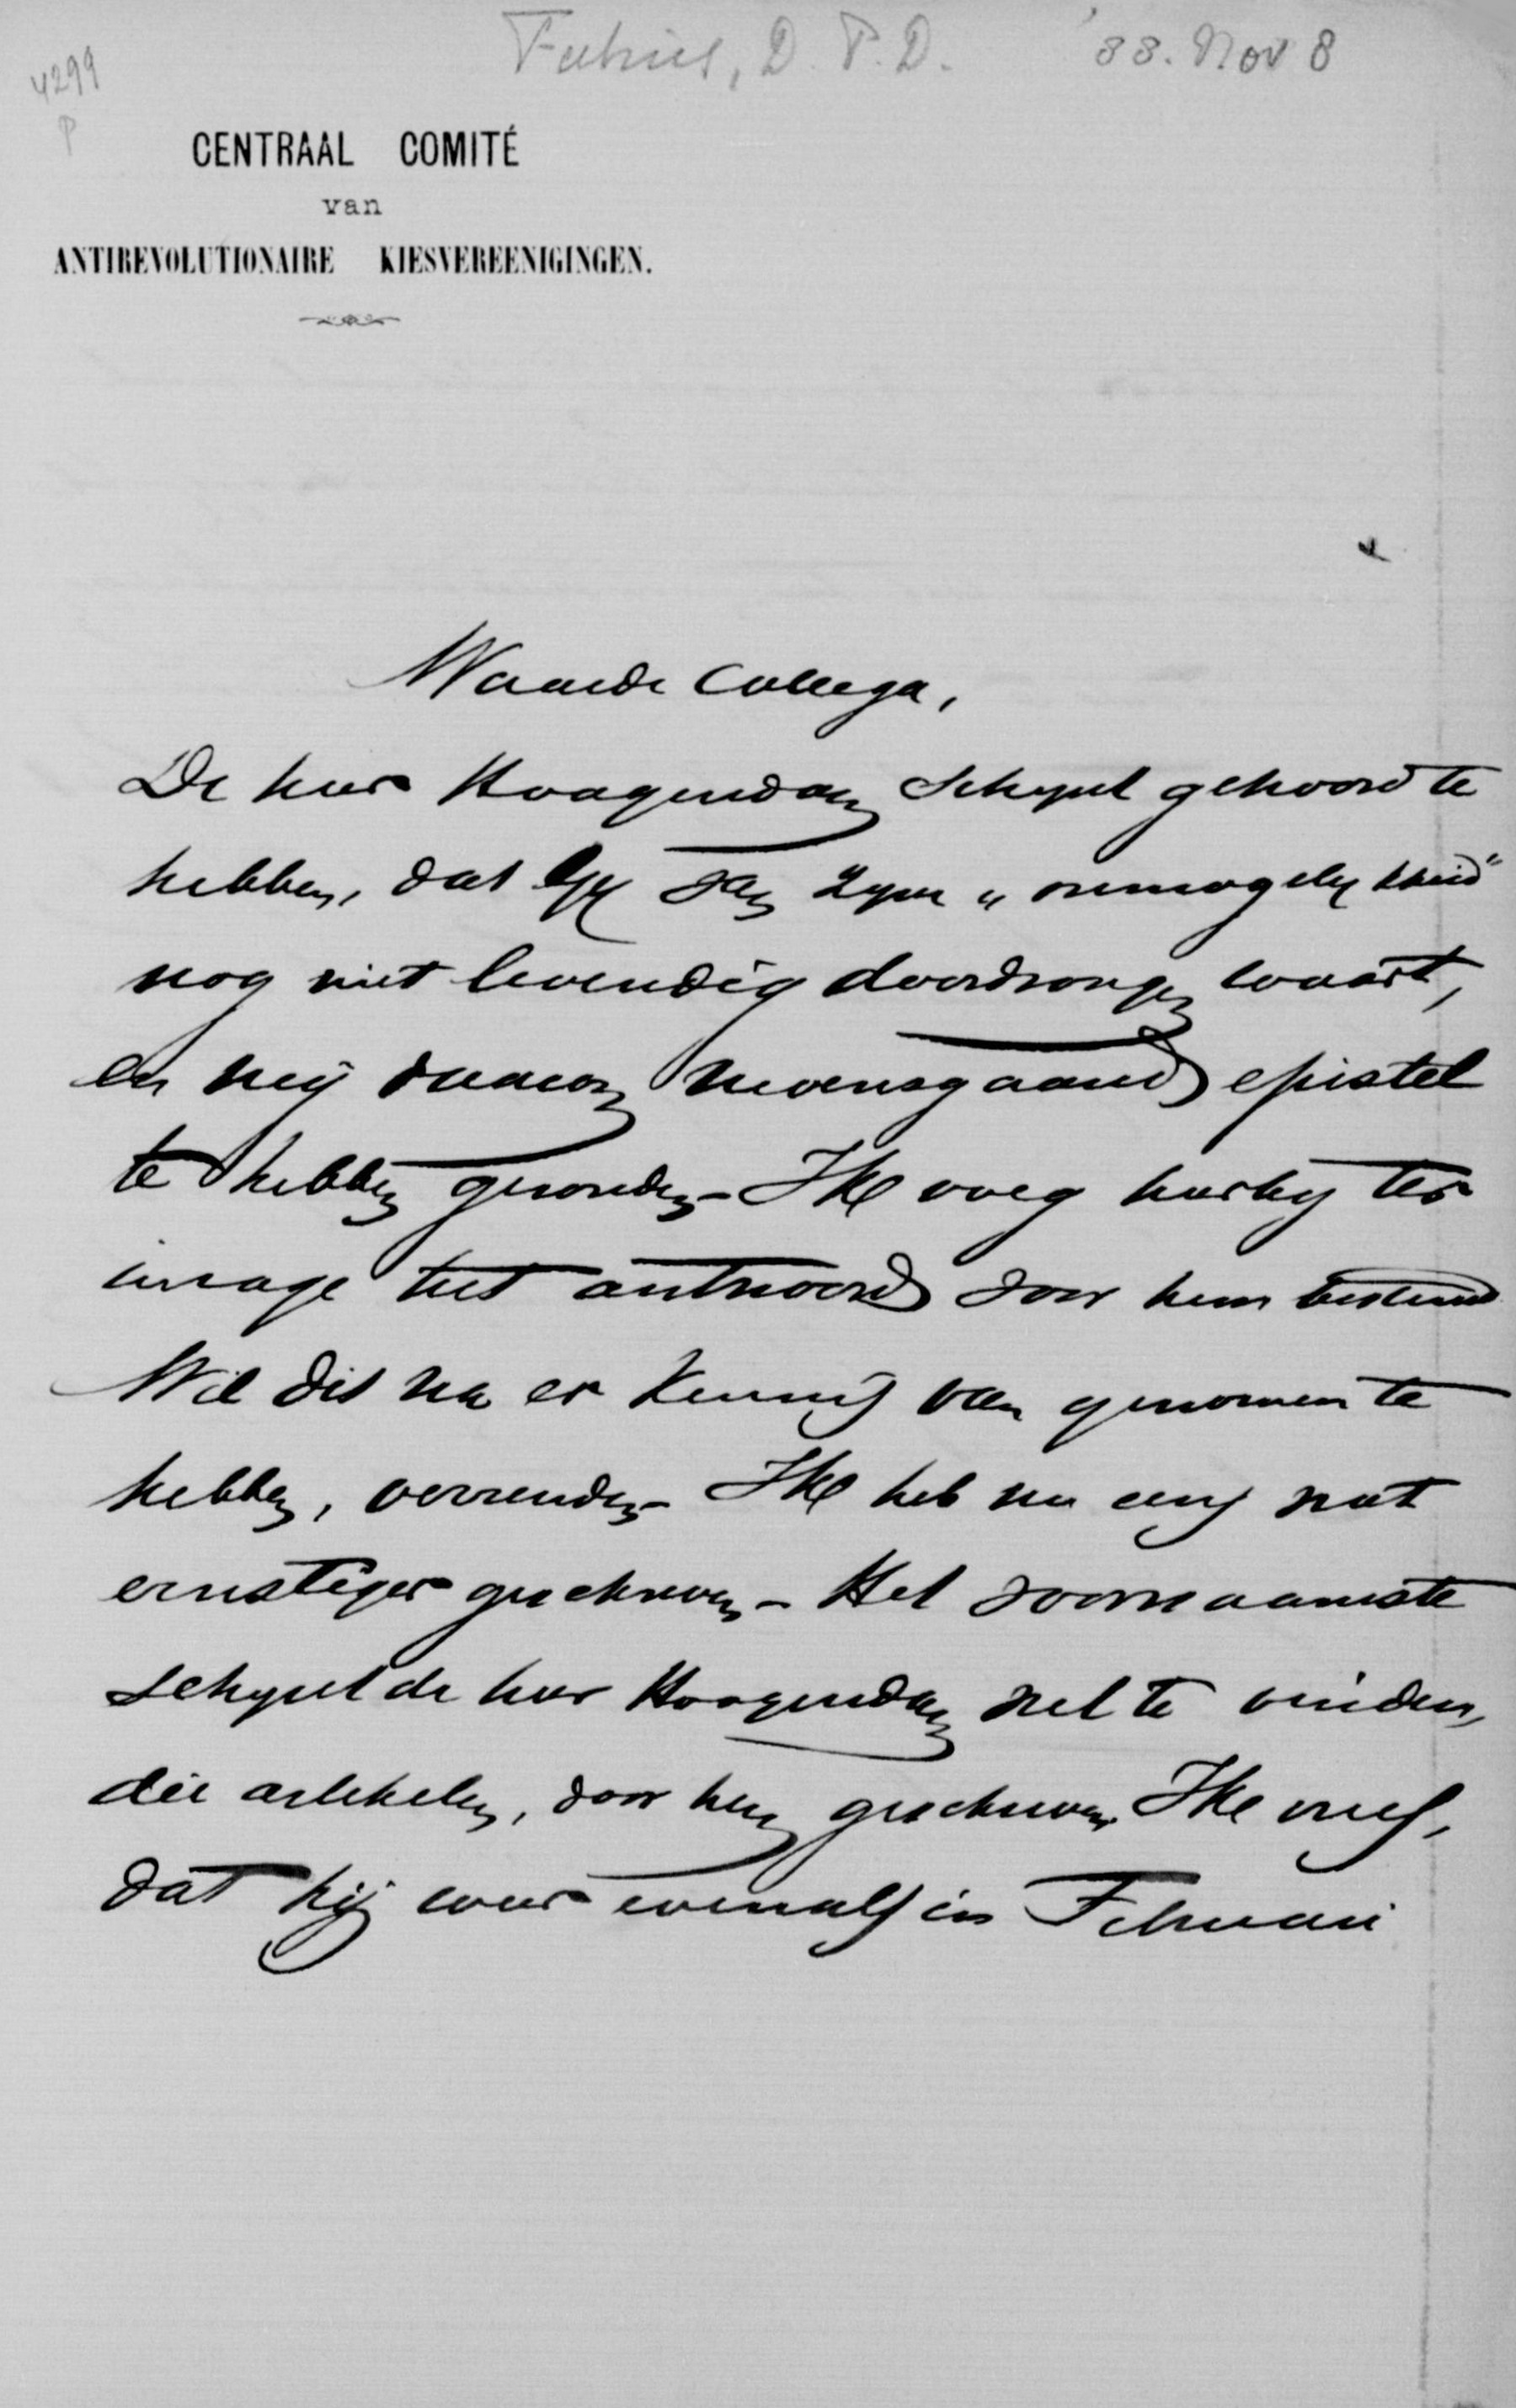 Fabius, D. P. D. '88. Nov 8
4299
P
CENTRAAL COMITÉ
van
ANTIREVOLUTIONAIRE KIESVEREENIGINGEN.
Waarde Collega,
De heer Hoogendam schynt gehoord te
hebben, dat Gy van zyne „onmogelykheid"
nog niet levendig doordrongen waart,
en my daarom nevensgaand epistel
te hebben gezonden – Ik voeg hierby ter
inzage het antwoord voor hem bestemd
Wil dit na er kennis van genomen te
hebben, verzenden – Ik heb nu eens wat
ernstiger geschreven – Het voornaamste
schynt de heer Hoogendam wel te vinden,
die artikelen, door hem geschreven. Ik vrees,
dat hij weer evenals in Februari